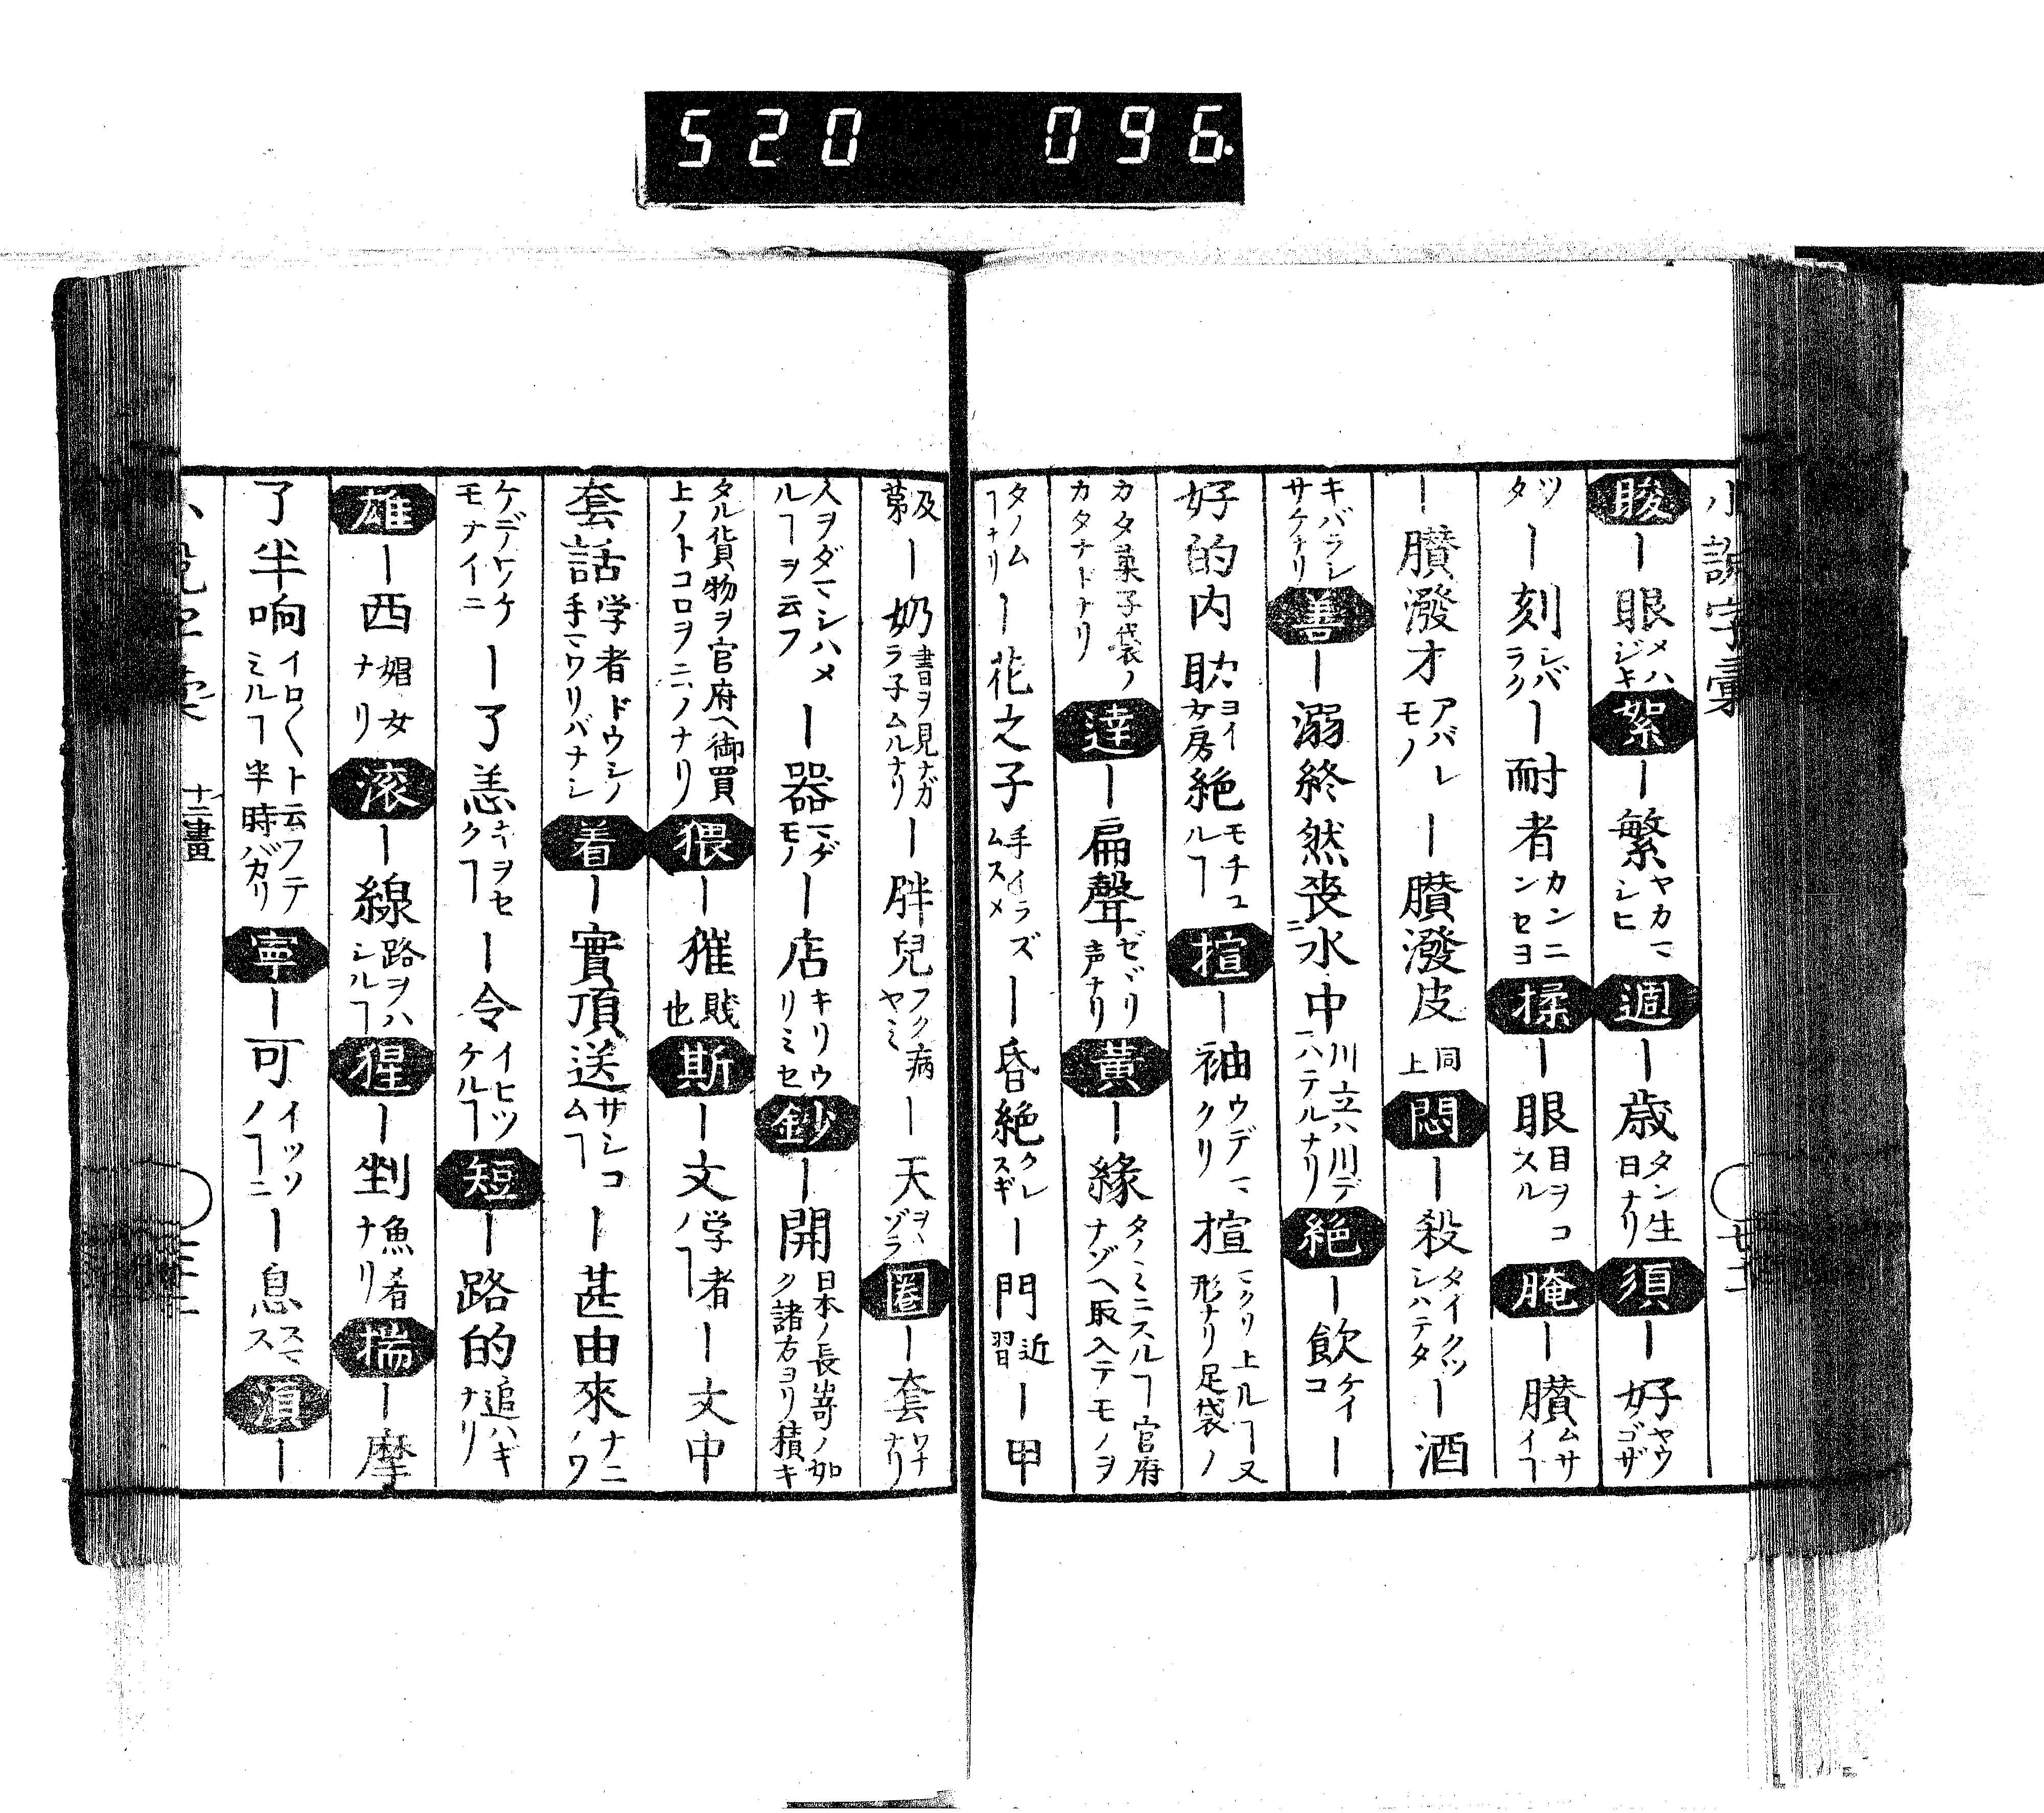 520 096.
小説字彙
睃ー眼メハジキ絮ー繁ヤカマシヒ週ー歳タン生日ナリ須ー好ヤウゴザ
ツター刻シバラクー耐者カンニンセヨ揉ー眼目ヲコスル腌ー臢ムサイヿ
ー臢潑才アバレモノー臢潑皮同上悶ー殺タイクツシハテター酒
キバラシサケナリ善ー溺終然喪水中川立ハ川デハテルナリ絶ー飲ケイコー
好的内助ヨイ女房絶モチユルヿ揎ー袖ウデマクリ揎マクリ上ルヿ又形ナリ足袋ノ
カタ菓子袋ノカタナドナリ達ー扁聲ゼヾリ声ナリ黄ー緣タノミニスルヿ官府ナゾヘ取入テモノヲ
タノムヿナリー花之子手イラズムスメー昏絶クレスギー門近習ー甲
及第ー奶書ヲ見ナガラ子ムルナリー胖兒フク病ヤミー天ヲヽゾラ圏ー套ワナナリ
人ヲダマシハメルヿヲ云フー器マダモノー店キリウリミセ鈔ー開日本ノ長崎ノ如ク諸方ヨリ積キ
タル貨物ヲ官府ヘ御買上ノトコロヲ云ノナリ猥ー獕賤也斯ー文学者ノヿー文中
套話学者ドウシノ手マワリバナシ着ー實頂送サシコムヿー甚由來ナニノワ
ケデワケモナイニー了恙キヲセクヿー令イヒツケルヿ短ー路的追ハギナリ
雄ー西娼女ナリ滚ー線路ヲハシルヿ猩ー剉魚肴ナリ揣ー摩
了半晌イロ〱ト云フテミルヿ半時バカリ寧ー可イッソノヿニー息スマス湏ー
十二畫